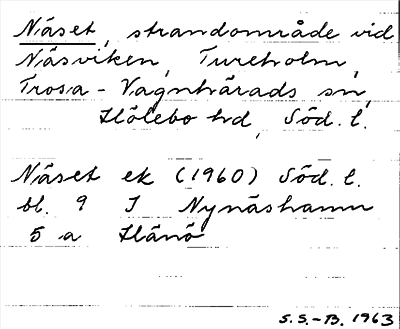 Näset, strandområde vid
Näsviken, Tureholm,
Trosa-Vagnhärads sn,
Hölebo hd, Söd. l.
Näset ek (1960) Söd. l.
bl. 9 I Nynäshamn
5 a Hånö
S.S.-B. 1963